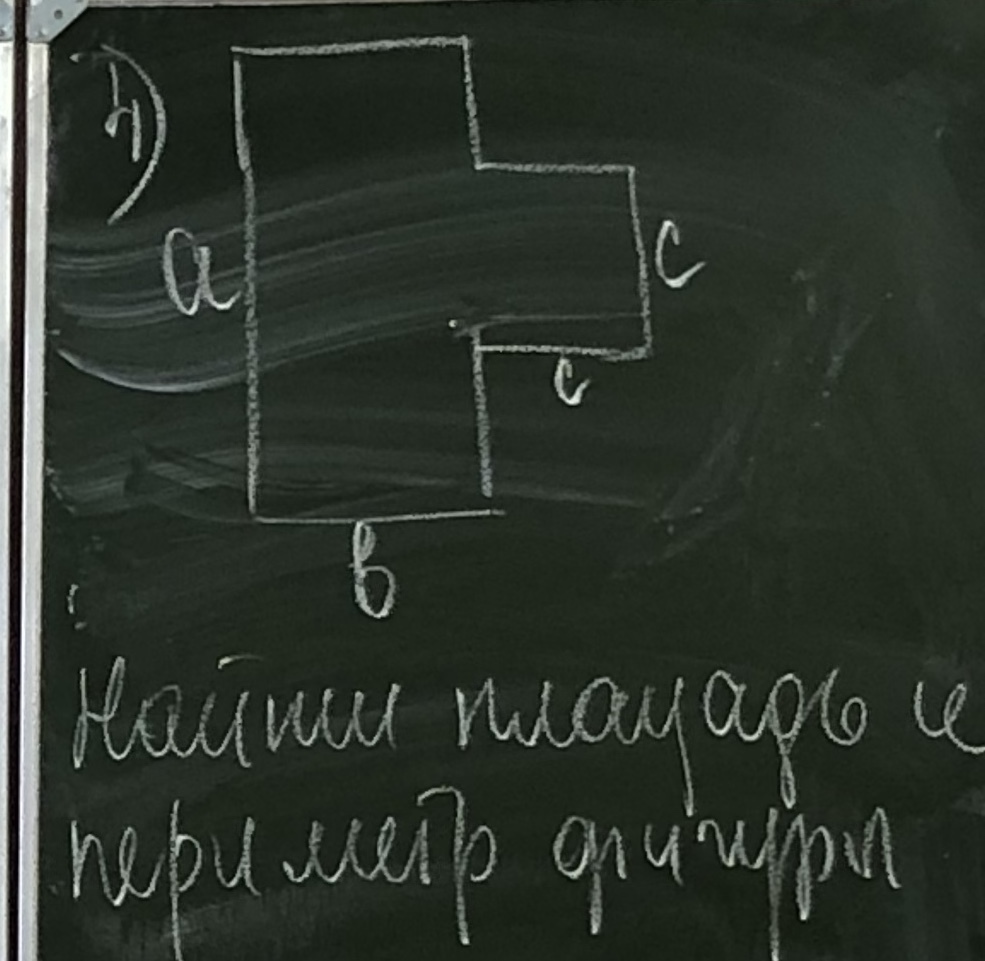 4)
a
c
c
в
Найти площадь и
периметр фигуры